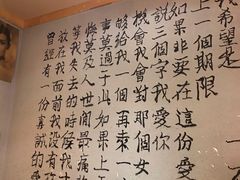 曾經有一份真誠的
放在我面前我沒有
等我失去的時候我
悔莫及人世間最痛
事莫過于此如果上
夠給我一個再來一
機會我會對那個女
說三個字我愛你
如果非要在這份愛
上一個期限
我希望是